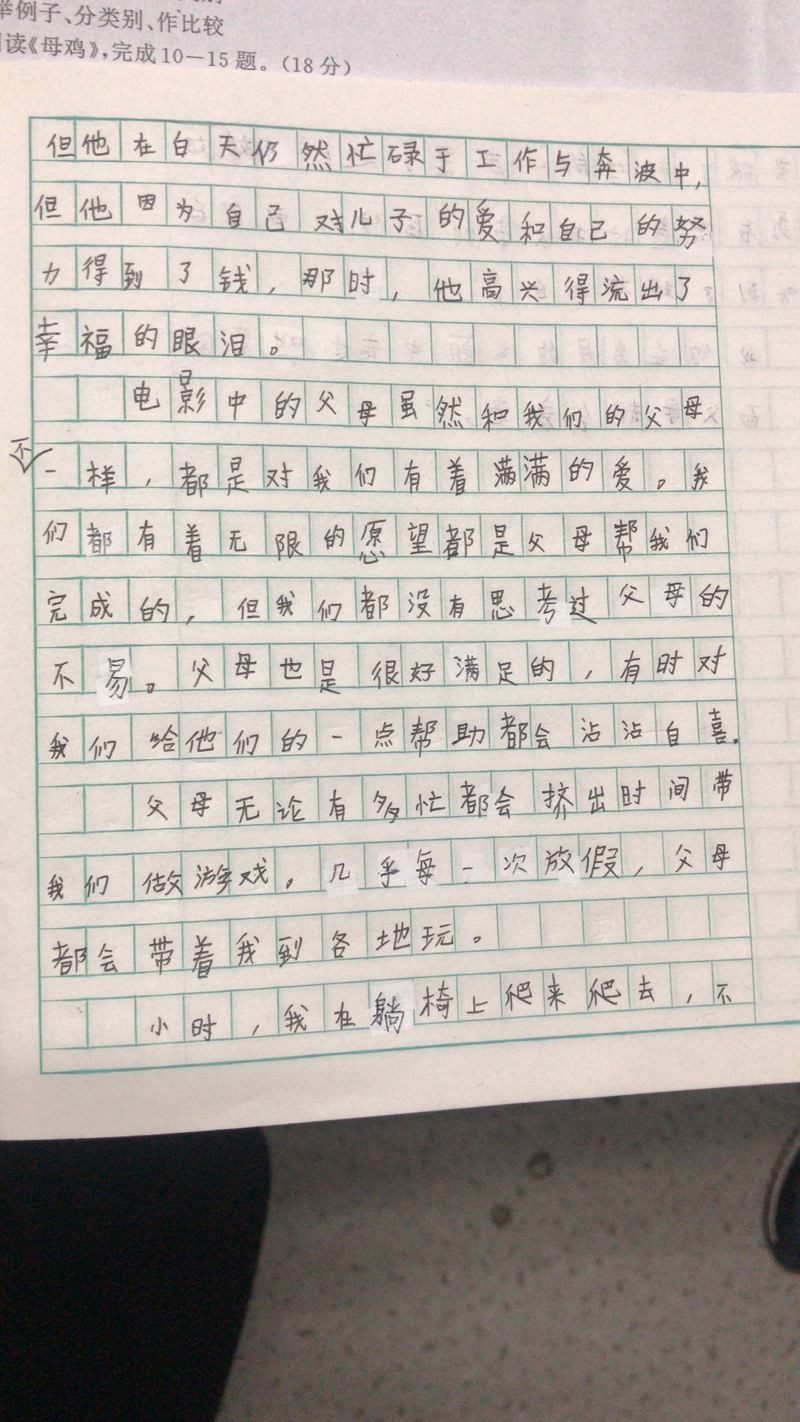 举例子、分类别、作比较
读《母鸡》,完成10—15题。(18分)
但他在白天仍然忙碌于工作与奔波中,
但他因为自己对儿子的爱和自己的努
力得到了钱,那时,他高兴得流出了
幸福的眼泪。
电影中的父母虽然和我们的父母
不一样,都是对我们有着满满的爱。我
们都有着无限的愿望都是父母帮我们
完成的,但我们都没有思考过父母的
不易。父母也是很好满足的,有时对
我们给他们的一点帮助都会沾沾自喜.
父母无论有多忙都会挤出时间带
我们做游戏。几乎每一次放假,父母
都会带着我到各地玩。
小时,我在躺椅上爬来爬去,不